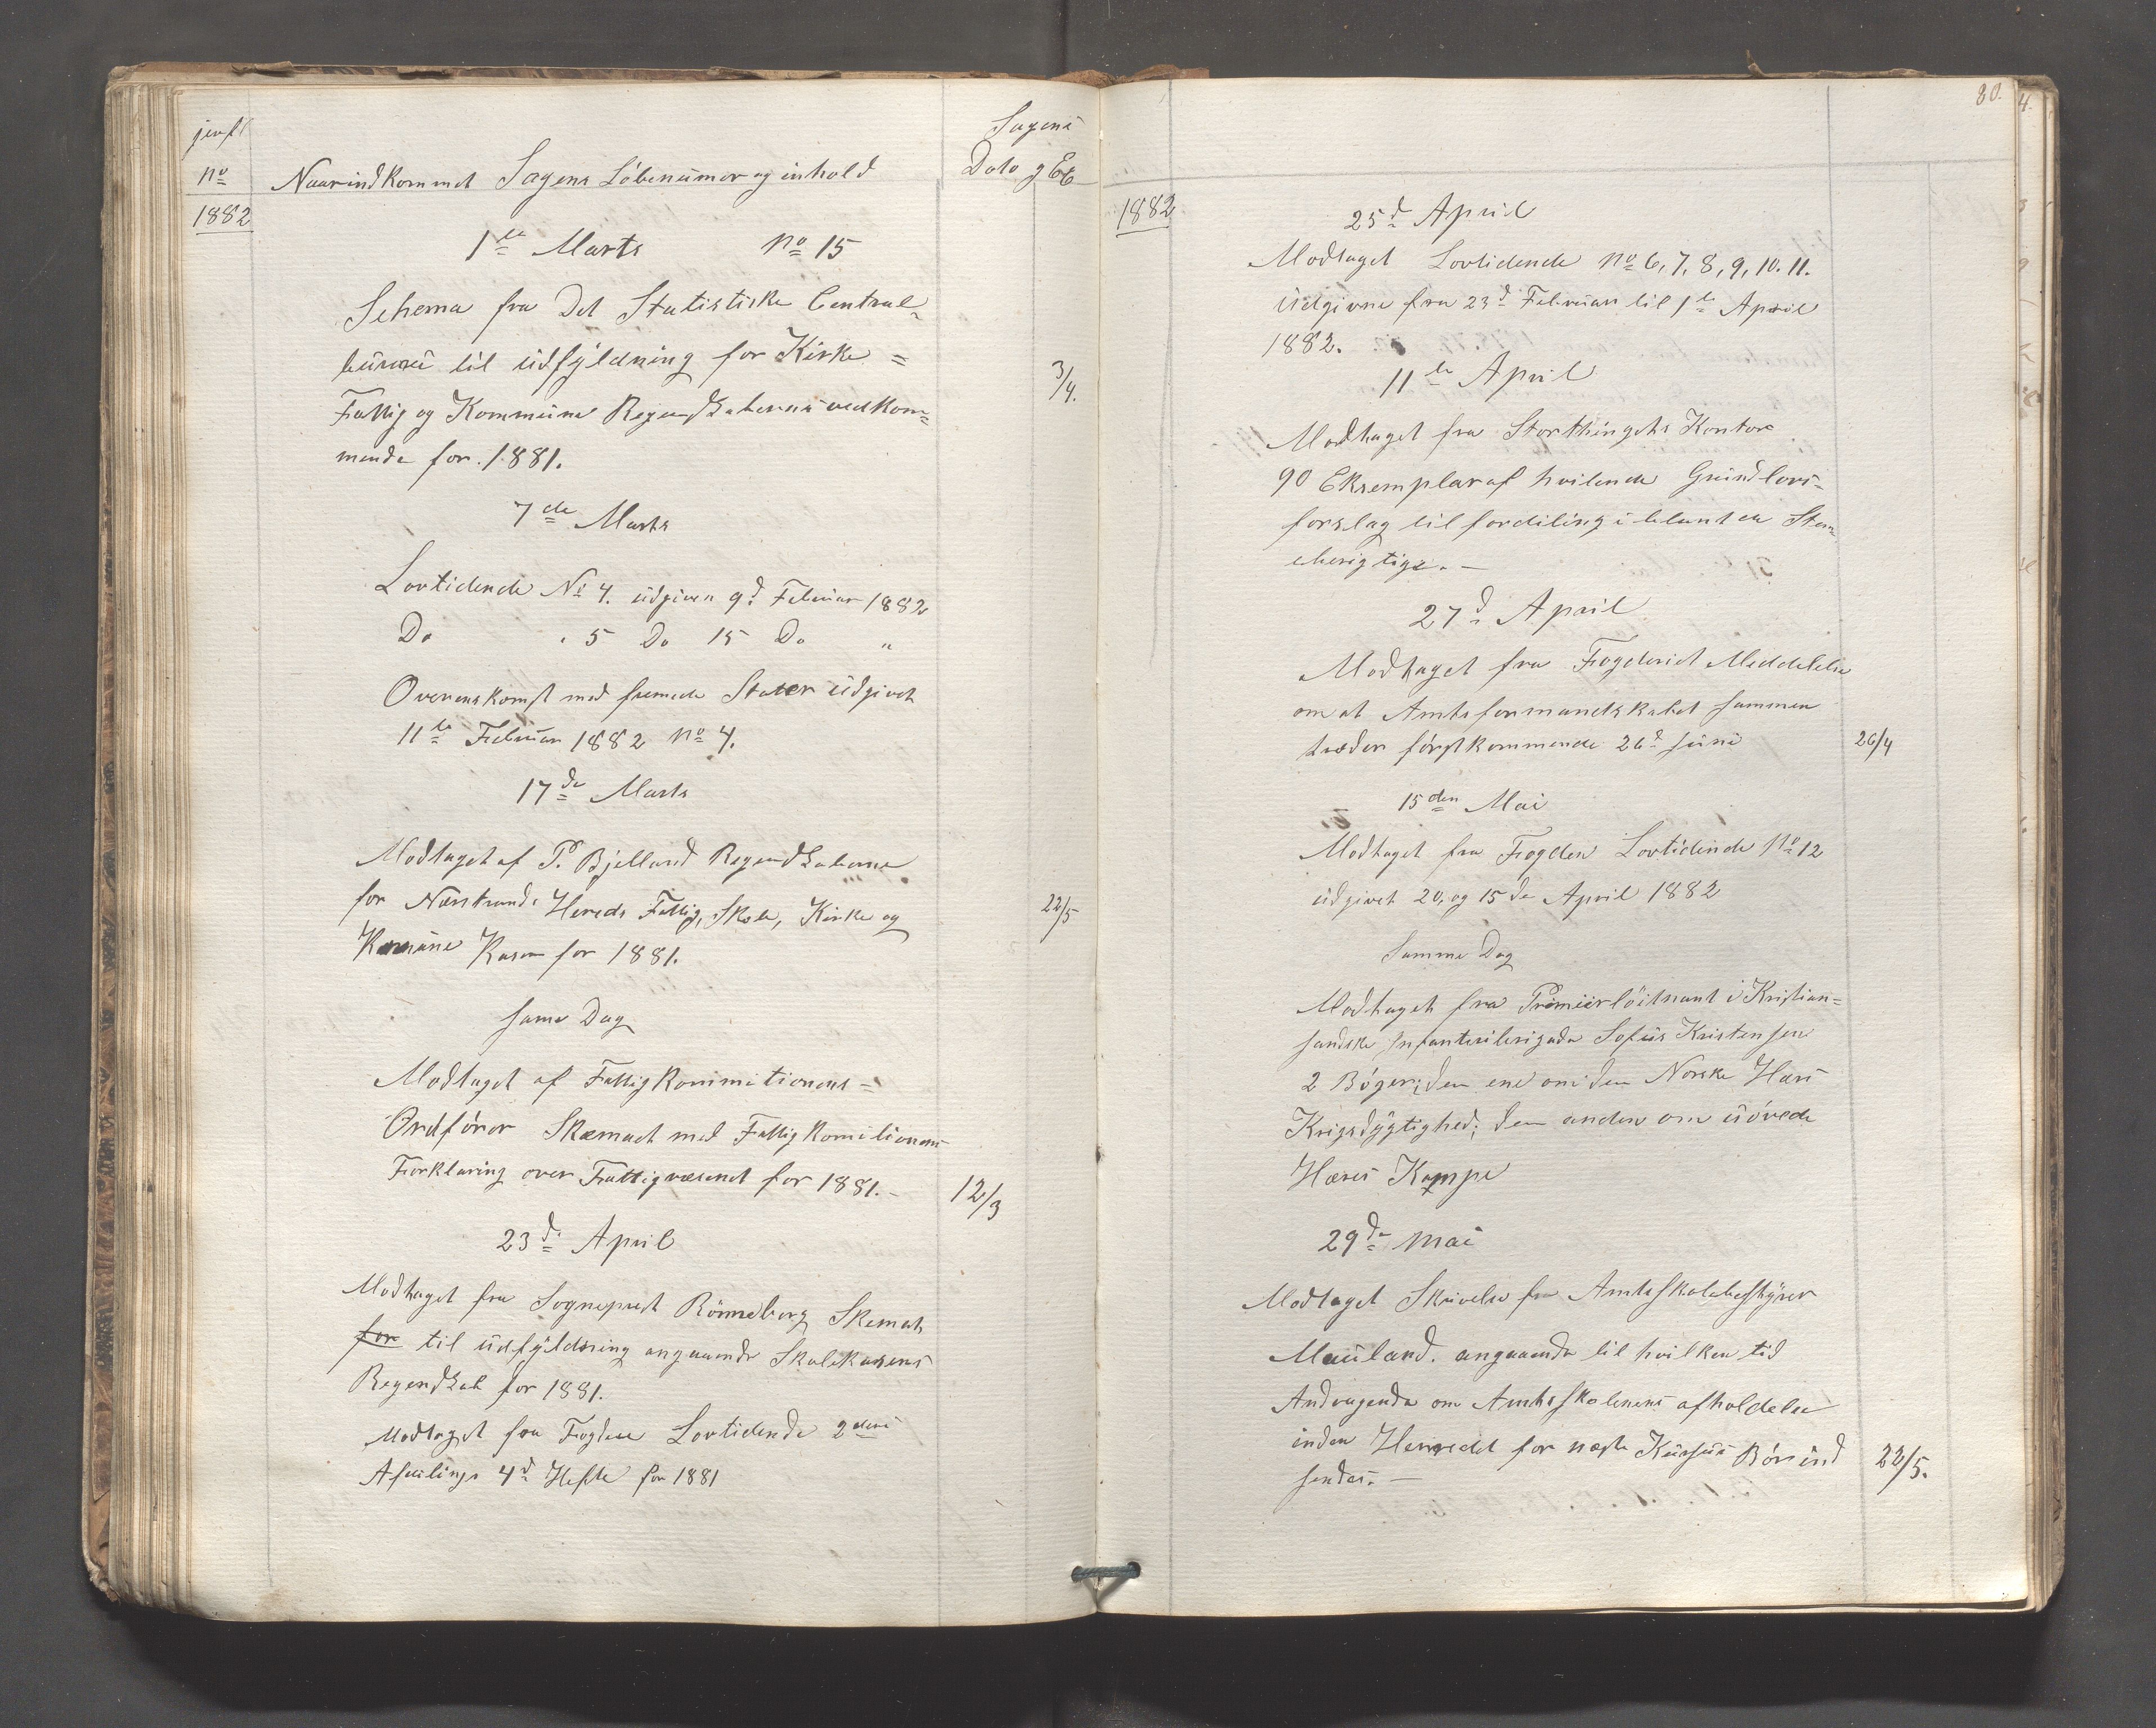 jevf
No
Naarindkommet Sagens Löbenumer og inhold
Sagens
Dato og
1882
1te Marts No 15
Schema fra Det Statistiske Central-
büraü til üdfÿldning for Kirke =
Fattig og Kommüne Regendskaberne vedkom=
mende for 1881.
3/4.
7de Marts
Lovtidende No 4. üdgiven 9d Februar 1882
Do " 5 Do 15 Do "
Overenskomst med fremede Stater üdgivet
11te Februar 1882 No 4.
17de Marts
Modtaget af P. Bjelland Regendskaberne
for Nærstrands Hereds Fattig, Skole, Kirke og
Komüne Kasse for 1881.
22/5
same Dag
Modtaget af Fattigkommitionens =
Ordförer Skemaet med Fattigkomitionens
Forklaring over Fattigvæsenet for 1881.-
12/3
23de April
Modtaget fra Sognepræst Rönneberg Skemat
for til üdfÿldning angaaende Skolekasens
Regendskab for 1881.
Modtaget fra Fogden Lovtidende 2den
Afdelings 4d Hefte for 1881
80.
4.
1882
25d April
Modtaget Lovtidende No 6, 7, 8, 9, 10. 11.
üdgivne fra 23d Februar til 1te April
1882.
11te April
Modtaget fra Storthingets Kontor
90 Eksemplar af hvilende Gründlovs-
forslag til fordeling iblant de Stem-
eberigtige. -
27d April
Modtaget fra Fogderiet Meddelelse
om at Amtsformandskabet sammen
træder förstkommende 26d Jüni
26/4
15den Mai
Modtaget fra Fogden Lovtidende No 12
üdgivet 20, og 15de April 1882
Samme Dag
Modtaget fra Premierlöitnant i Kristian=
sandske Infanteribrigade Sofüs Kristensen
2 Böger; den ene om den Norske Hærs
Krigsdÿgtighed; den anden om üövede
Hæres Kampe
29de Mai
Modtaget Skrivelse fra Amtsskolebestÿrer
Maüland. angaaende til hvilken tid
Andragende om Amtsskolenens afholdelse
inden Herredet for næste Kürsüs Bör ind
sendes. -
22/5.